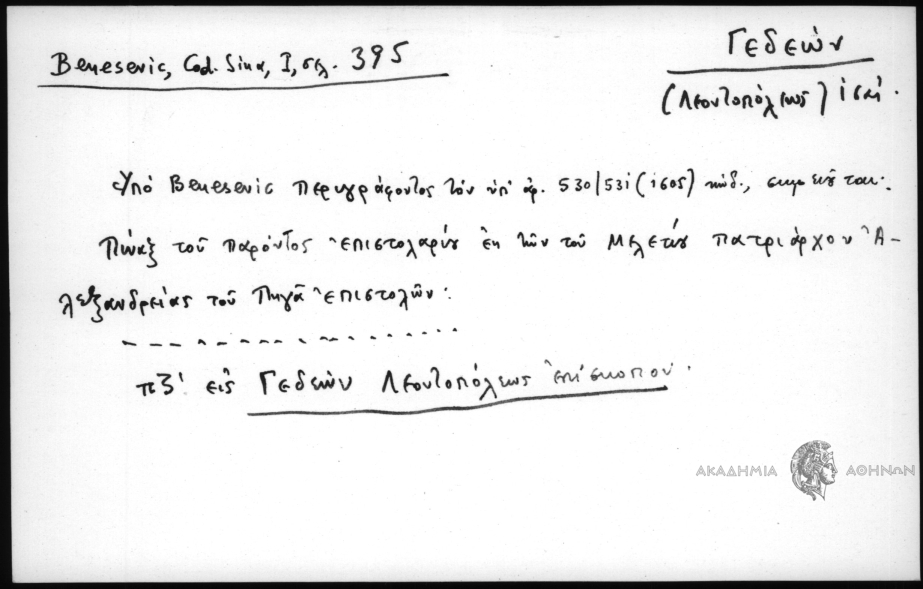 Benesevic, Cod. Sina, I, σελ. 395
Γεδεών
(Λεοντοπόλεως)
Ὑπό Benesevic περιγράφοντος τόν ὑπ' ἀρ. 530/531 (1605) κώδ., σημειοῦται:
Πίναξ τοῦ παρόντος ἐπιστολαρίου ἐκ τῶν τοῦ Μελετίου πατριάρχου Ἀ-
λεξανδρείας τοῦ Πηγᾶ ἐπιστολῶν:
πξ' εἰς Γεδεών Λεοντοπόλεως ἐπίσκοπον.
ΑΚΑΔΗΜΙΑ ΑΘΗΝΩΝ